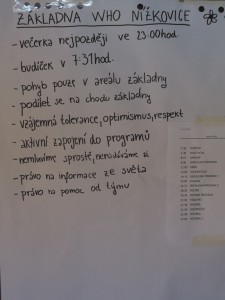 ZÁKLADNA WHO NÍŽKOVICE
- večerka nejpozději ve 23:00hod.
- budíček v 7:31hod.
- pohyb pouze v areálu základny
- podílet se na chodu základny
- vzájemná tolerance, optimismus, respekt
- aktivní zapojení do programů
- nemluvíme sprostě, nenadáváme si
- právo na informace ze světa
- právo na pomoc od týmu